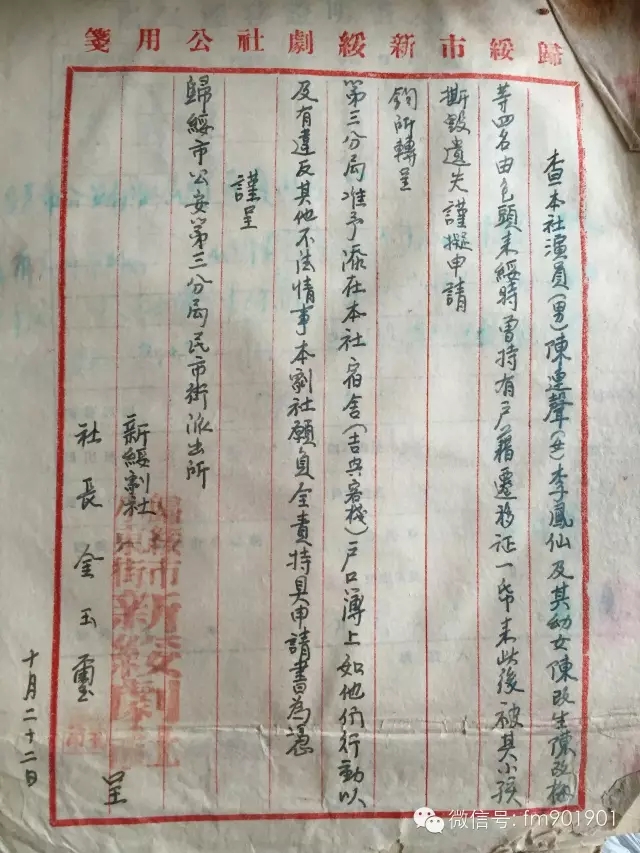 歸綏市新綏劇社公用箋
查本社演員(男)陳運聲(女)李鳳仙及其幼女陳改生陳改梅
等四名由包頭来綏時曾持有戸籍遷移证一帋来此後被其小孩
撕毀遺失謹擬申請
鈞所轉呈
第三分局准予添在本社宿舍(吉典客栈)戸口簿上如他们行動以
及有違反其他不法情事本劇社願負全責持具申請書為憑
謹呈
歸綏市公安第三分局民市街派出所
新綏劇社
社長金玉璽 呈
十月二十二日
歸綏市
街新綏劇社
微信号: fm901901